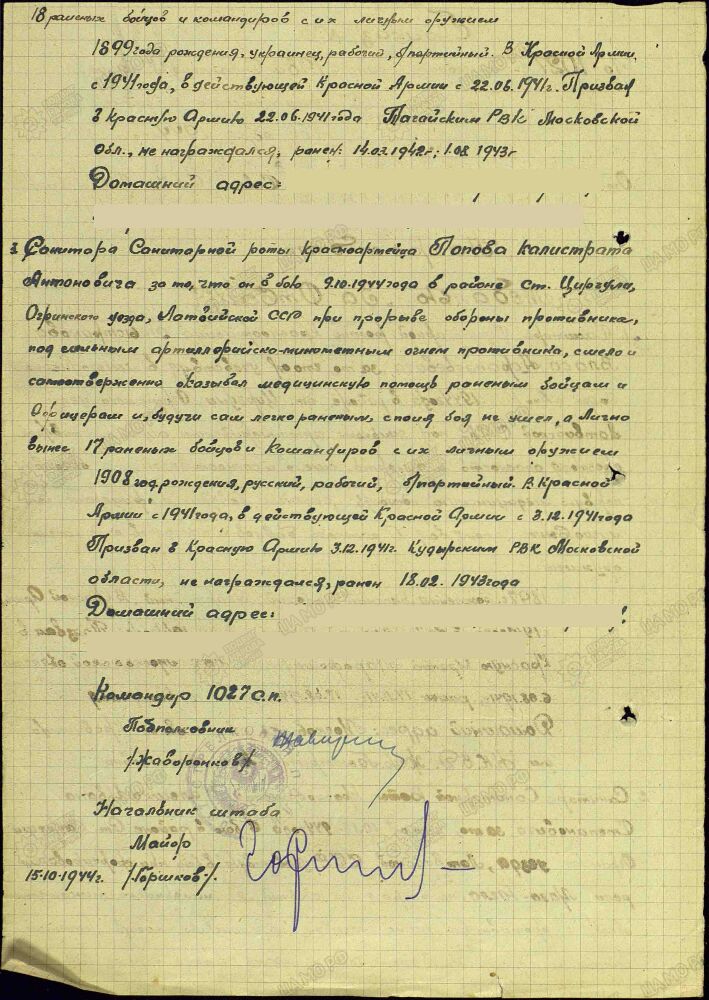 18 раненых бойцов и командиров с их личным оружием
1899 года рождения, украинец, рабочий, б/партейный. В Красной Армии
с 1941 года, в действующей Красной Армии с 22.06.1941г. Призван
в Красную Армию 22.06.1941 года Тагайским РВК Московской
обл., не награждался, ранен: 14.03.1942г; 1.08 1943г
Домашний адрес:
3. Санитара Санитарной роты красноармейца Попова Калистрата
Антоновича за то, что он в бою 9.10.1944 года в районе ст. Циргули,
Огринского уезда, Латвийской ССР при прорыве обороны противника,
под сильным артиллерийско-минометным огнем противника, смело и
самоотверженно оказывал медицинскую помощь раненым бойцам и
Офицерам и, будучи сам легко раненым, с поля боя не ушел, а лично
вынес 17 раненых бойцов и Командиров с их личным оружием
1908 год рождения, русский, рабочий, б/партейный. В Красной
Армии с 1941 года, в действующей Красной Армии с 3.12.1941 года
Призван в Красную Армию 3.12.1941г. Кудырским РВК Московской
области, не награждался, ранен 18.02. 1943 года
Домашний адрес:
Командир 1027 с.п.
Подполковник
/Жаворонков/
Начальник штаба
Майор
15.10.1944г. /.Горшков./